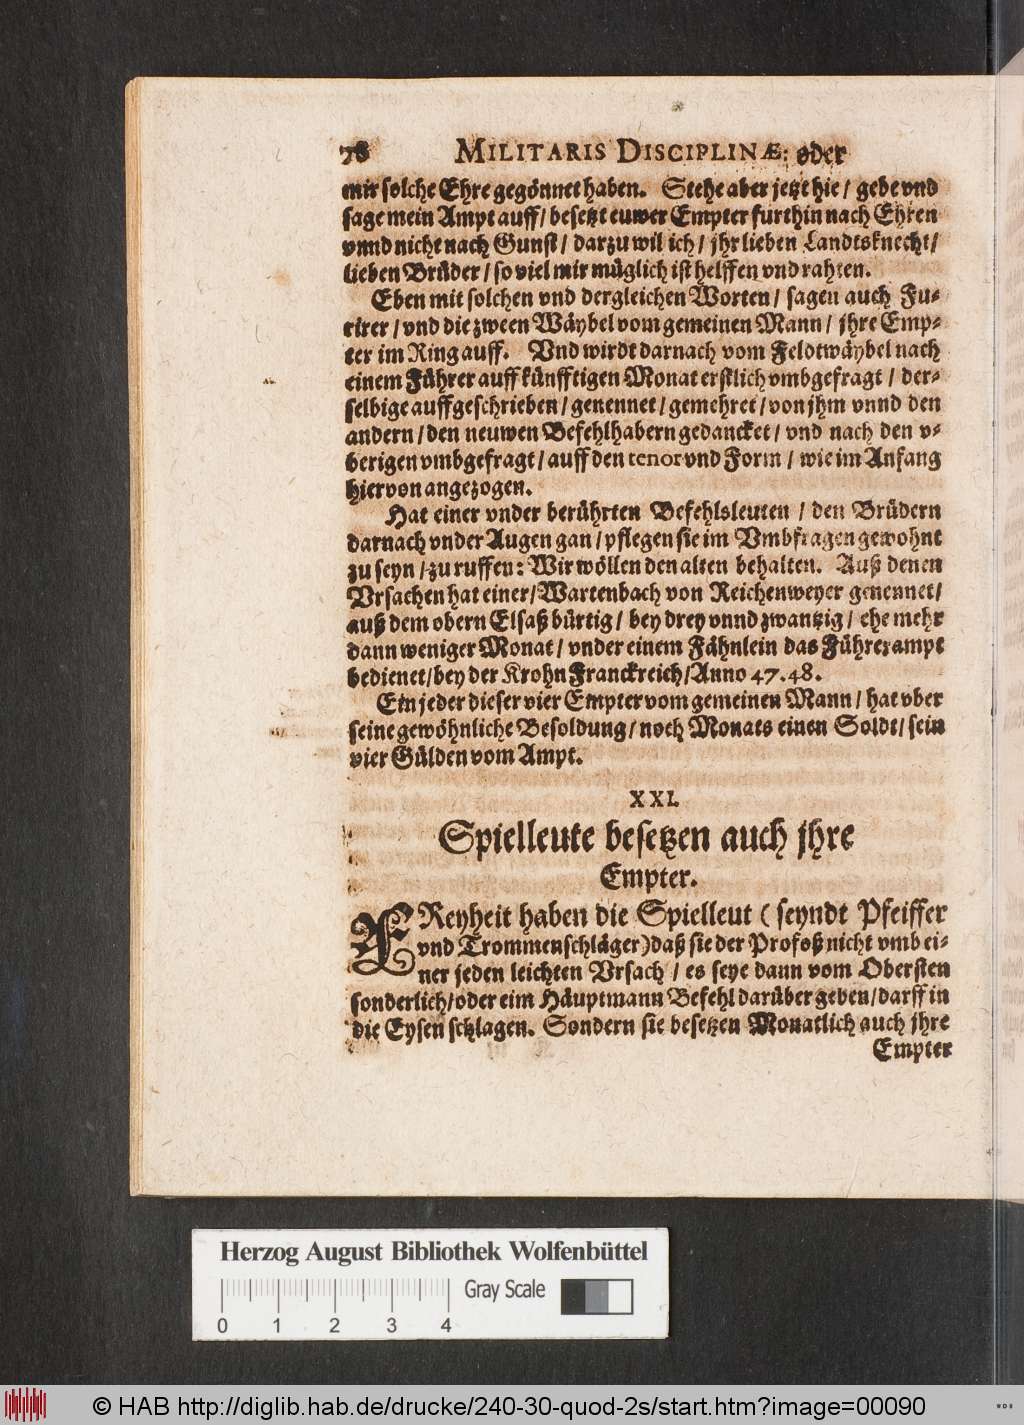 78 MILITARIS DISCIPLINÆ: oder
mir solche Ehre gegönnet haben. Stehe aber jetzt hie / gebe vnd
sage mein Ampt auff / besetzt euwer Empter furthin nach Ehren
vnnd nicht nach Gunst / darzu wil ich / jhr lieben Landtsknecht /
lieben Brüder / so viel mir müglich ist helffen vnd rahten.
Eben mit solchen vnd dergleichen Worten / sagen auch Fu-
rirer / vnd die zween Wäybel vom gemeinen Mann / jhre Emp-
ter im Ring auff. Vnd wirdt darnach vom Feldtwäybel nach
einem Führer auff künfftigen Monat erstlich vmbgefragt / der-
selbige auffgeschrieben / genennet / gemehret / von jhm vnnd den
andern / den neuwen Befehlhabern gedancket / vnd nach den v-
berigen vmbgefragt / auff den tenor vnd Form / wie im Anfang
hiervon angezogen.
Hat einer vnder berührten Befehlsleuten / den Brüdern
darnach vnder Augen gan / pflegen sie im Vmbfragen gewohnt
zu seyn / zu ruffen: Wir wöllen den alten behalten. Auß denen
Vrsachen hat einer / Wartenbach von Reichenweyer genennet /
auß dem obern Elsaß bürtig / bey drey vnnd zwantzig / ehe mehr
dann weniger Monat / vnder einem Fähnlein das Führerampt
bedienet / bey der Krohn Franckreich / Anno 47. 48.
Ein jeder dieser vier Empter vom gemeinen Mann / hat vber
seine gewöhnliche Besoldung / noch Monats einen Soldt / sein
vier Gülden vom Ampt.
XXI.
Spielleute besetzen auch jhre
Empter.
FReyheit haben die Spielleut ( seyndt Pfeiffer
vnd Trommenschläger) daß sie der Profoß nicht vmb ei-
ner jeden leichten Vrsach / es seye dann vom Obersten
sonderlich / oder eim Häuptmann Befehl darüber geben / darff in
die Eysen schlagen. Sondern sie besetzen Monatlich auch jhre
Empter
Herzog August Bibliothek Wolfenbüttel
Gray Scale
0 1 2 3 4
© HAB http://diglib.hab.de/drucke/240-30-quod-2s/start.htm?image=00090